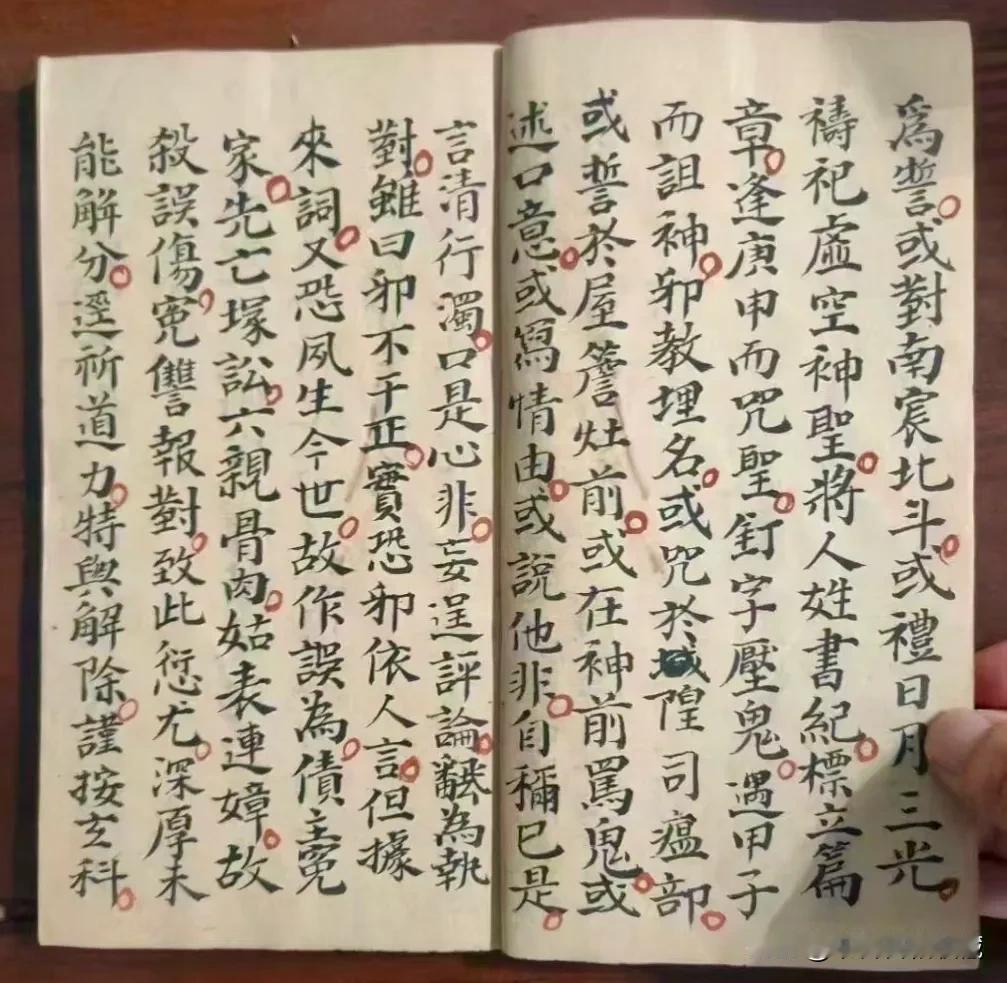 爲誓或對南宸北斗或禮日月三光
禱祀虛空神聖將人姓書紀標立篇
章逢庚申而咒聖釘字壓鬼遇甲子
而詛神邪教埋名或咒於城隍司瘟部
或誓於屋簷灶前或在神前罵鬼或
述口意或寫情由或說他非自稱己是
言清行濁口是心非妄逞評論飜為執
對雖曰邪不干正實恐邪依人言但據
來詞又恐夙生今世故作誤為債主冤
家先亡塚訟六親骨肉姑表連嫜故
殺誤傷冤讐報對致此愆尤深厚未
能解分逕祈道力特與解除謹按玄科